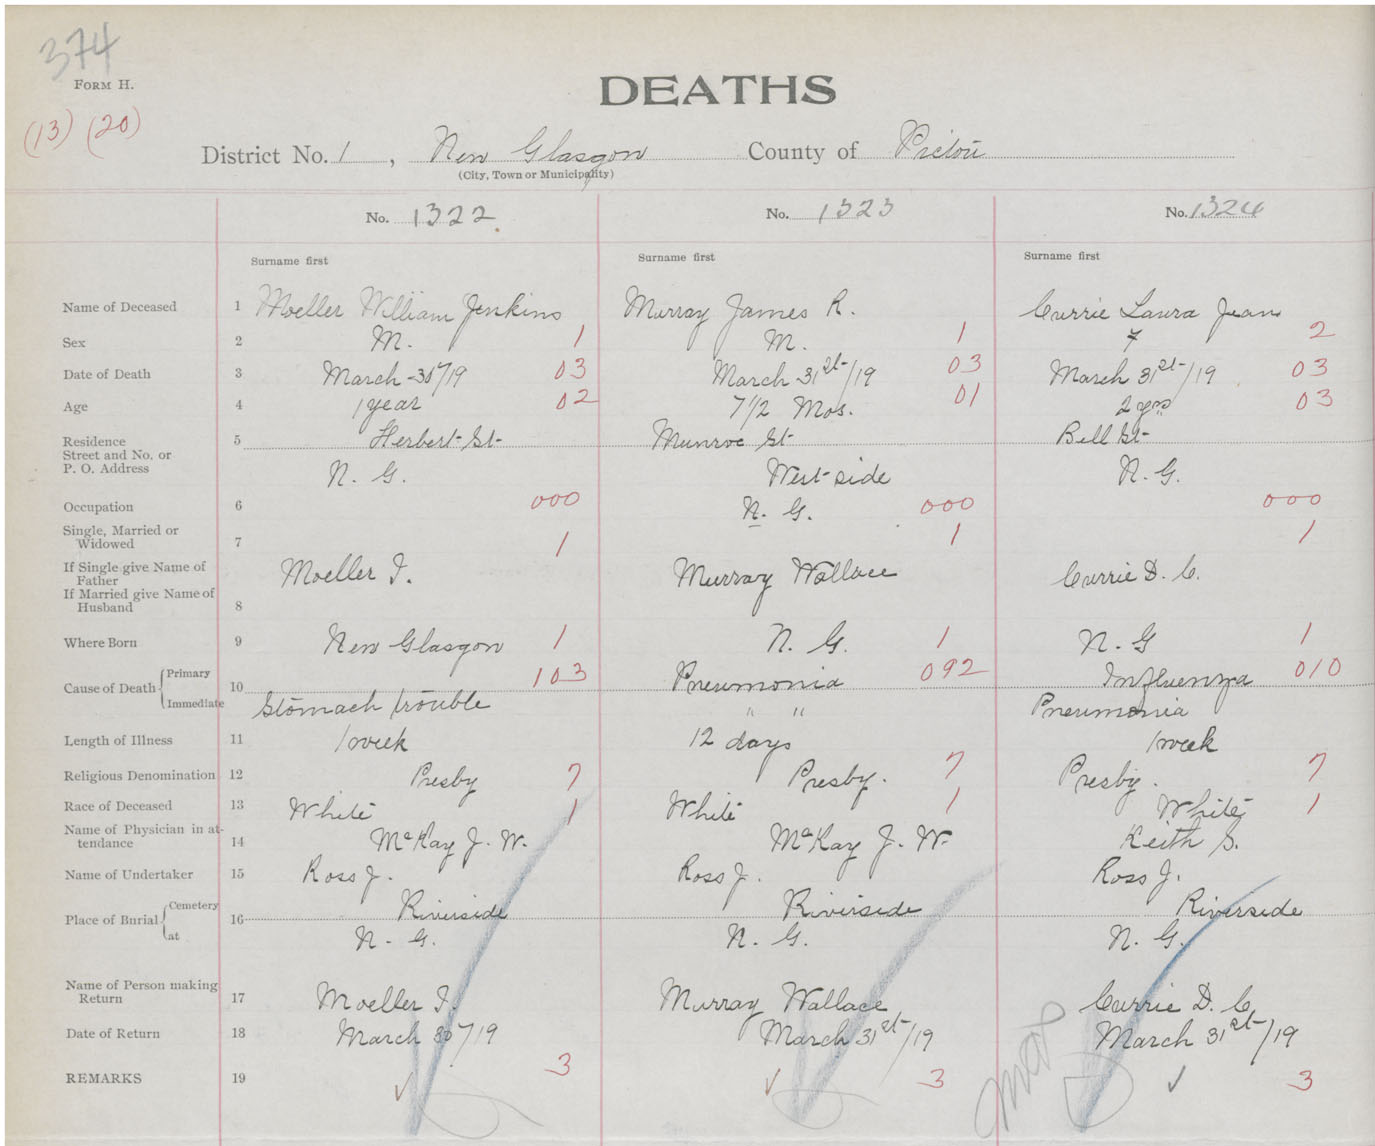 374
FORM H.
DEATHS
(13) (20)
District No. 1, New Glasgow County of Pictou
(City, Town or Municipality)
No. 1322 No. 1323 No. 1324
Surname first Surname first Surname first
Name of Deceased 1 Moeller William Jenkins Murray James R. Currie Laura Jean
Sex 2 M. 1 M. 1 F 2
Date of Death 3 March 30/19 03 March 31st/19 03 March 31st/19 03
Age 4 1 year 02 7 1/2 Mos. 01 2 yrs 03
Residence 5 Herbert St Munroe St Bell St
Street and No. or
P. O. Address N. G. West side N. G.
Occupation 6 000 N. G. 000 000
Single, Married or
Widowed 7 1 1 1
If Single give Name of
Father Moeller I. Murray Wallace Currie D. C.
If Married give Name of
Husband 8
Where Born 9 New Glasgow 1 N. G. 1 N. G 1
Cause of Death Primary 10 103 Pneumonia 092 Influenza 010
Immediate Stomach trouble " " Pneumonia
Length of Illness 11 1 week 12 days 1 week
Religious Denomination 12 Presby 7 Presby. 7 Presby. 7
Race of Deceased 13 White 1 White 1 White 1
Name of Physician in at-
tendance 14 McKay J. W. McKay J. W. Keith S.
Name of Undertaker 15 Ross J. Ross J. Ross J.
Place of Burial Cemetery 16 Riverside Riverside Riverside
at N. G. N. G. N. G.
Name of Person making
Return 17 Moeller I. Murray Wallace Currie D. C
Date of Return 18 March 30/19 March 31st/19 March 31st/19
REMARKS 19 ✓ 3 ✓ 3 ✓ 3